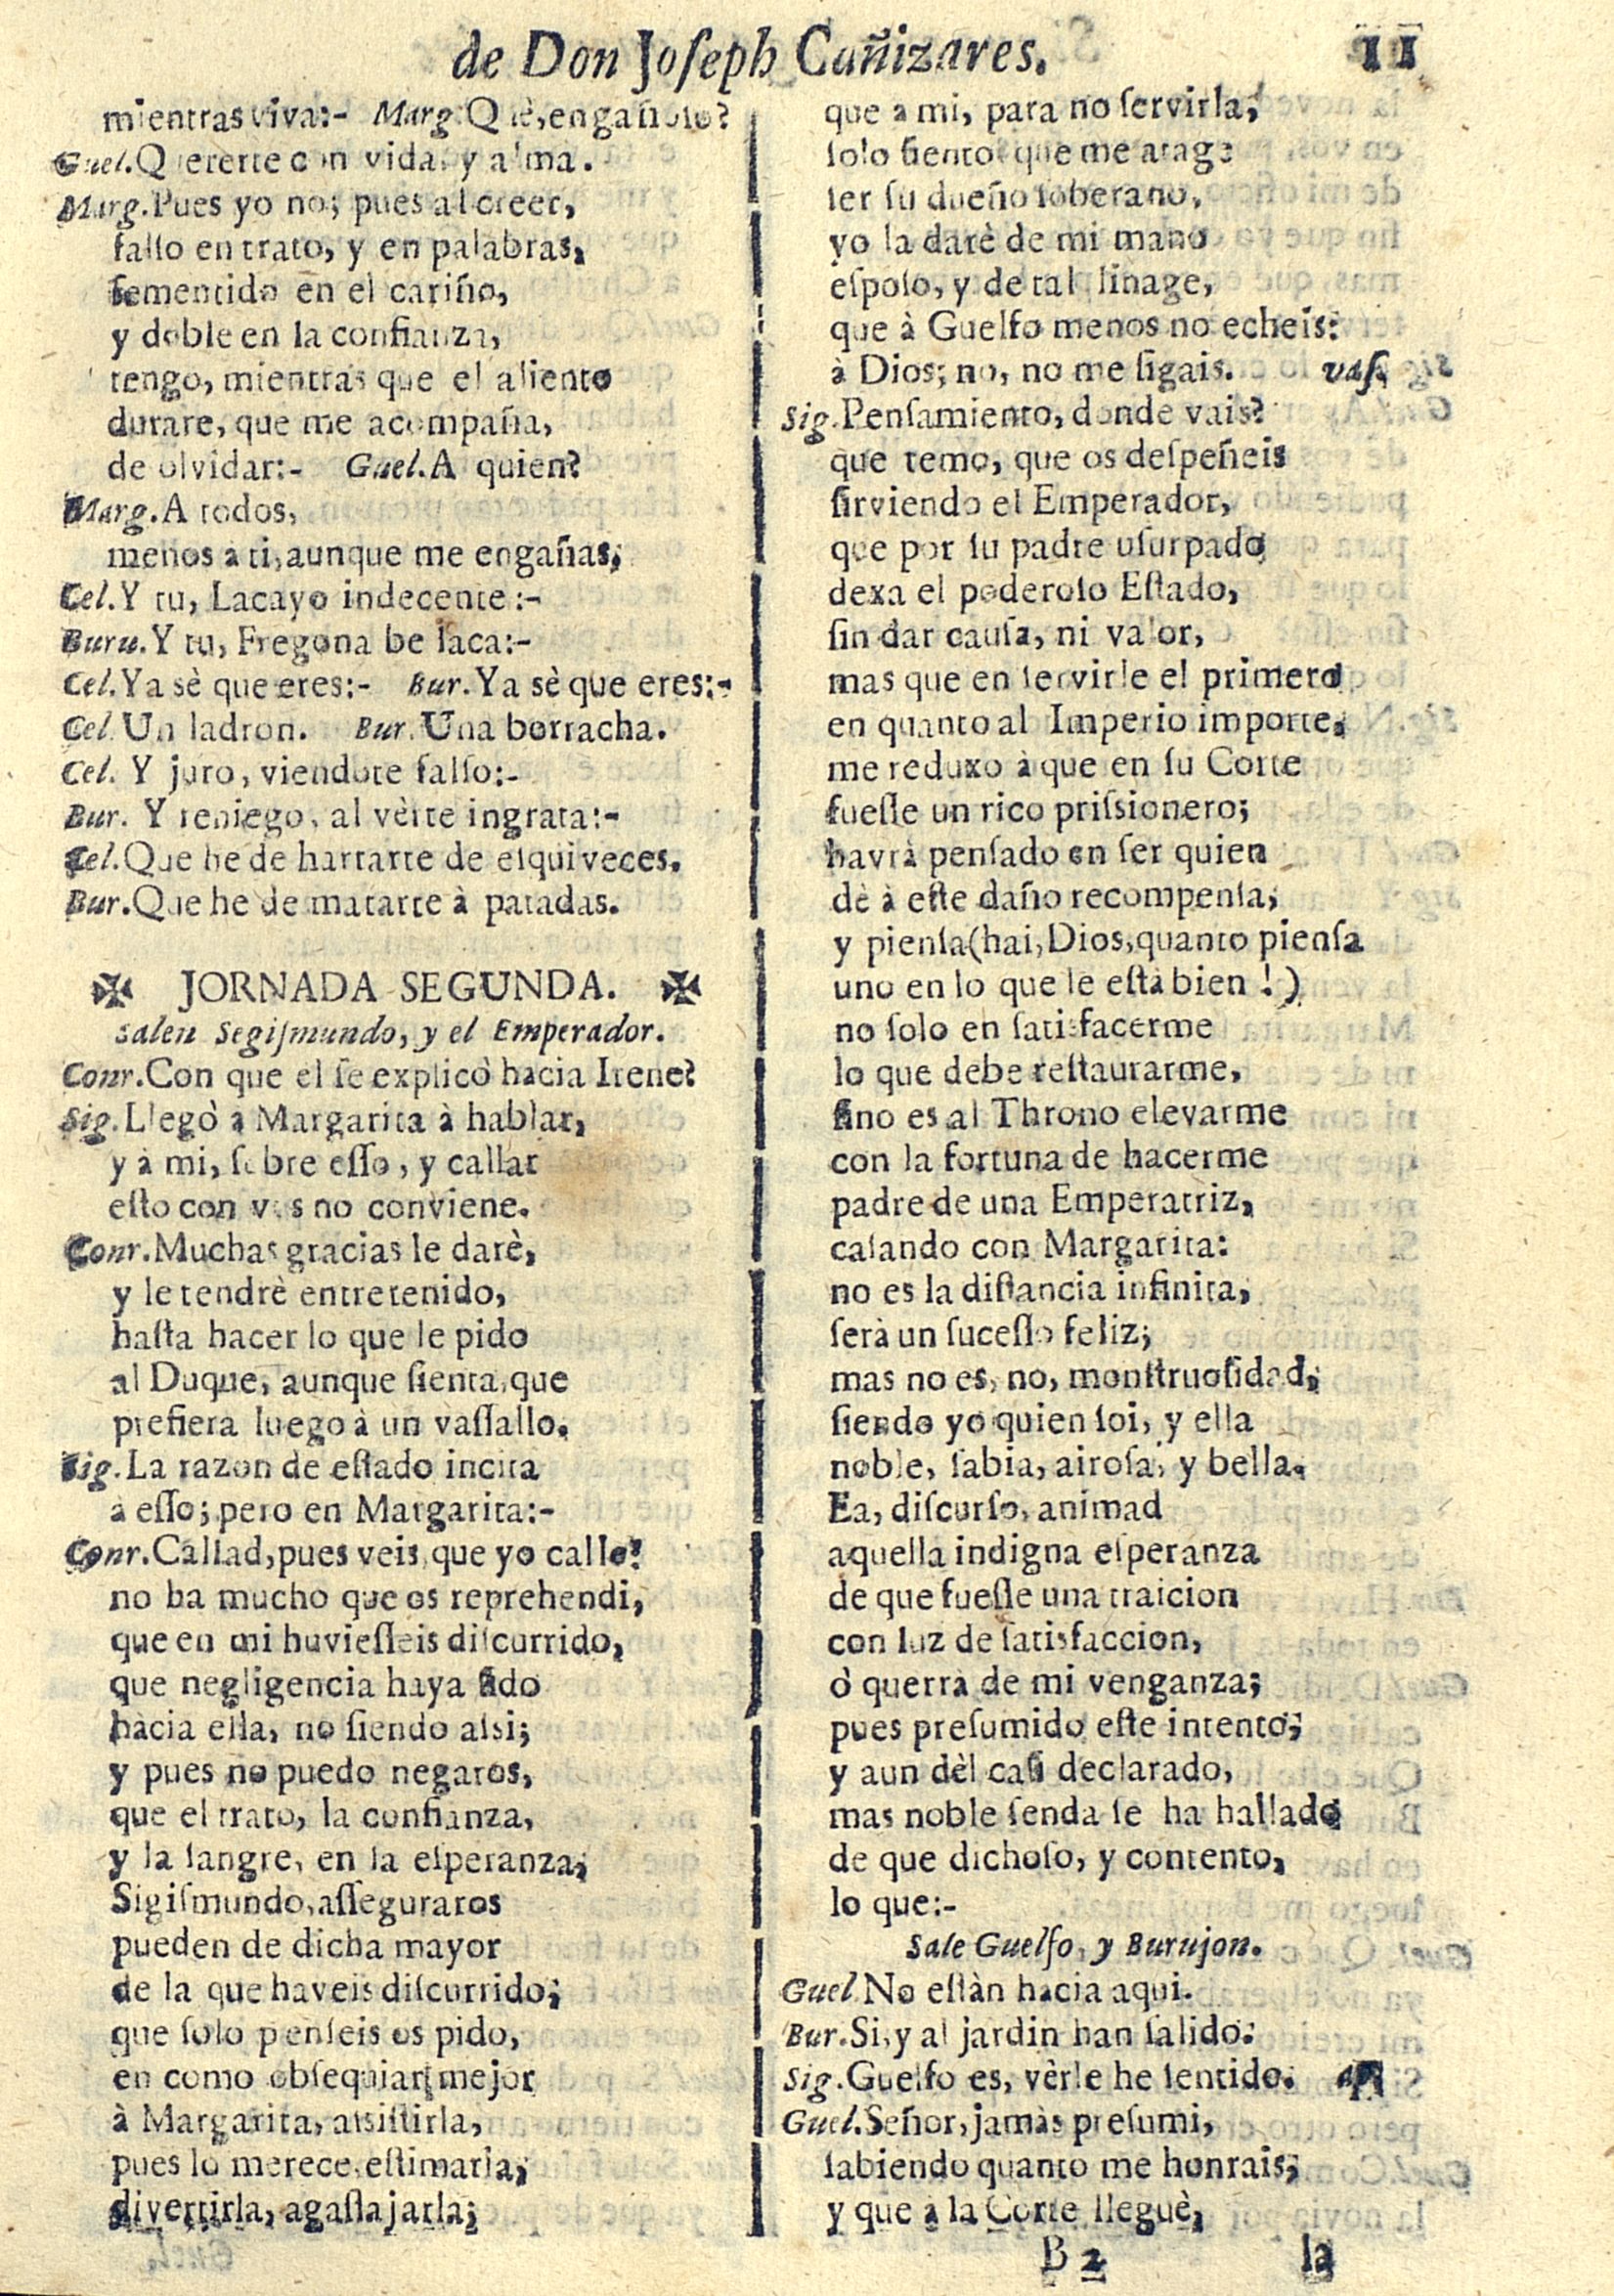 de Don Joſeph Cañizares.
11
mientras viva:- Marg. Què, engañoſo?
Guel. Quererte con vida, y alma.
Marg. Pues yo no; pues al creer,
falſo en trato, y en palabras,
fementido en el cariño,
y doble en la confianza,
tengo, mientras que el aliento
durare, que me acompaña,
de olvidar:- Guel. A quien?
Marg. A todos,
menos à ti, aunque me engañas;
Cel. Y tu, Lacayo indecente:-
Buru. Y tu, Fregona bellaca:-
Cel. Ya sè que eres:- Bur. Ya sè que eres:-
Cel. Un ladron. Bur. Una borracha.
Cel. Y juro, viendote falſo:-
Bur. Y reniego, al vèrte ingrata:-
Cel. Que he de hartarte de eſquiveces.
Bur. Que he de matarte à patadas.
✠ JORNADA SEGUNDA. ✠
Salen Segiſmundo, y el Emperador.
Conr. Con que el ſe explicò hacia Irene?
Sig. Llegò à Margarita à hablar,
y à mi, ſobre eſſo, y callar
eſto con vos no conviene.
Conr. Muchas gracias le darè,
y le tendrè entretenido,
haſta hacer lo que le pido
al Duque, aunque ſienta, que
prefiera luego à un vaſſallo.
Sig. La razon de eſtado incita
à eſſo; pero en Margarita:-
Conr. Callad, pues veis, que yo callo?
no ha mucho que os reprehendi,
que en mi huvieſſeis diſcurrido,
que negligencia haya ſido
hàcia ella, no ſiendo aſsi;
y pues no puedo negaros,
que el trato, la confianza,
y la ſangre, en la eſperanza,
Sigiſmundo, aſſeguraros
pueden de dicha mayor
de la que haveis diſcurrido;
que ſolo penſeis os pido,
en como obſequiar mejor
à Margarita, aſsiſtirla,
pues lo merece, eſtimarla,
divertirla, agaſſajarla;
que a mi, para no ſervirla,
ſolo ſiento que me atage
ſer ſu dueño ſoberano,
yo la darè de mi mano
eſpoſo, y de tal linage,
que à Guelfo menos no echeis:
à Dios; no, no me ſigais. vaſ.
Sig. Penſamiento, donde vais?
que temo, que os deſpeñeis
ſirviendo el Emperador,
que por ſu padre uſurpado
dexa el poderoſo Eſtado,
ſin dar cauſa, ni valor,
mas que en ſervirle el primero
en quanto al Imperio importe,
me reduxo à que en ſu Corte
fueſſe un rico priſsionero;
havrà penſado en ſer quien
dè à eſte daño recompenſa;
y pienſa (hai, Dios, quanto pienſa
uno en lo que le eſtà bien!)
no ſolo en ſatisfacerme
lo que debe reſtaurarme,
ſino es al Throno elevarme
con la fortuna de hacerme
padre de una Emperatriz,
caſando con Margarita:
no es la diſtancia infinita,
ſerà un ſuceſſo feliz;
mas no es, no, monſtruoſidad,
ſiendo yo quien ſoi, y ella
noble, ſabia, airoſa, y bella.
Ea, diſcurſo, animad
aquella indigna eſperanza
de que fueſſe una traicion
con luz de ſatisfaccion,
ò querrà de mi venganza;
pues preſumido eſte intento,
y aun dèl caſi declarado,
mas noble ſenda ſe ha hallado
de que dichoſo, y contento,
lo que:-
Sale Guelfo, y Burujon.
Guel. No eſtàn hacia aqui.
Bur. Si, y al jardin han ſalido.
Sig. Guelfo es, vèrle he ſentido. ap.
Guel. Señor, jamàs preſumi,
ſabiendo quanto me honrais,
y que à la Corte lleguè,
B 2
la